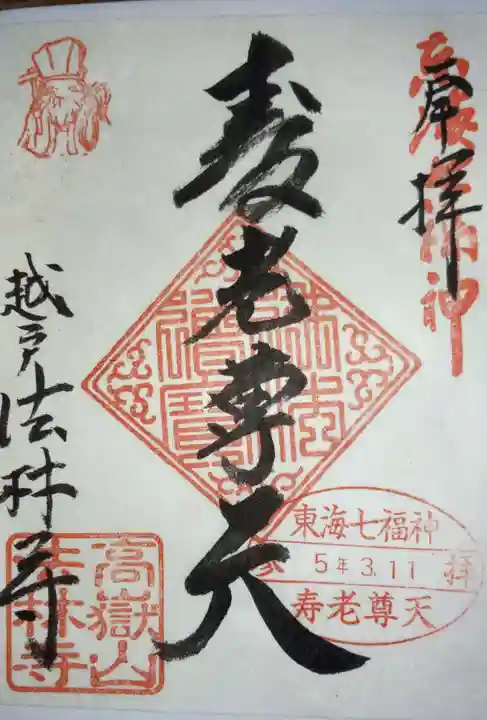 奉拝
東海七福神
寿老尊天
越戸 法林寺
高嶽山
法林寺
東海七福神
参 5年3.11 拝
寿老尊天